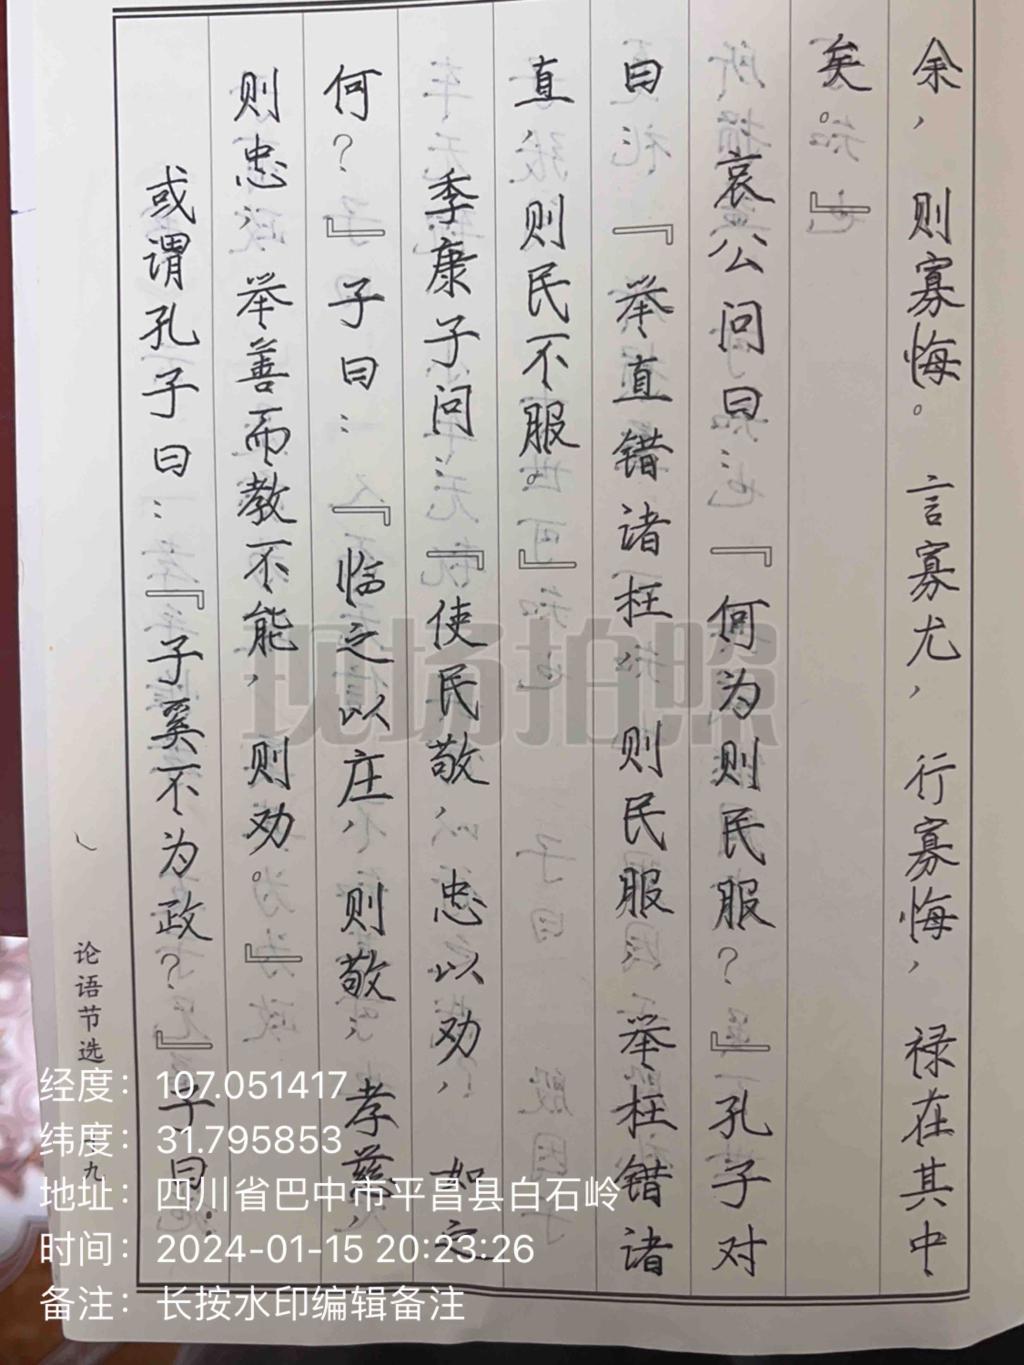 余，则寡悔。言寡尤，行寡悔，禄在其中
矣。』
哀公问曰：『何为则民服？』孔子对
曰：『举直错诸枉，则民服；举枉错诸
直，则民不服。』
季康子问：『使民敬，以忠以劝，如之
何？』子曰：『临之以庄，则敬；孝慈，
则忠；举善而教不能，则劝。』
或谓孔子曰：『子奚不为政？』子曰：
论语节选
九
现场拍照
经度：107.051417
纬度：31.795853
地址：四川省巴中市平昌县白石岭
时间：2024-01-15 20:23:26
备注：长按水印编辑备注